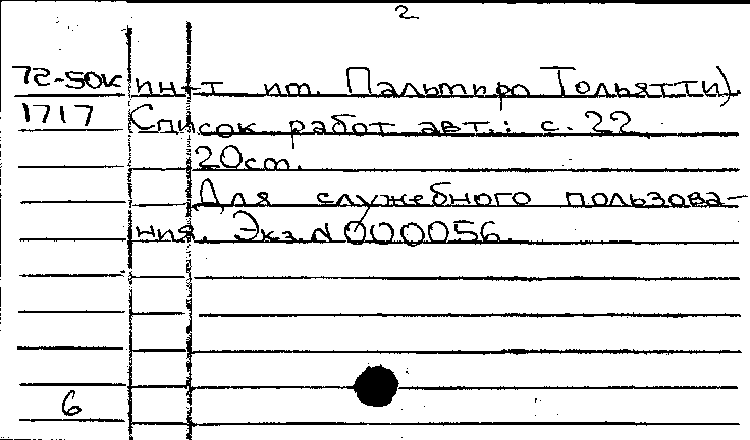 2
72-50к ин-т им. Пальмиро Тольятти).
1717 Список работ авт.: с. 22
20см.
Для служебного пользова-
ния. Экз. N 000056.
6